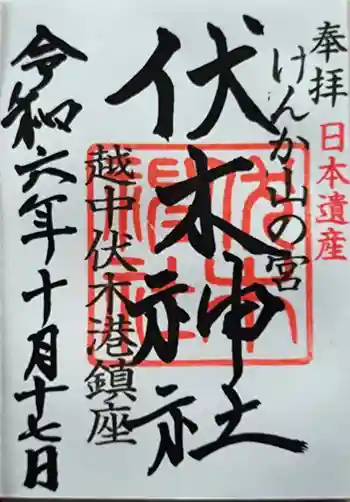 奉拝
日本遺産
けんか山の宮
伏木神社
越中伏木港鎮座
令和六年十月十七日